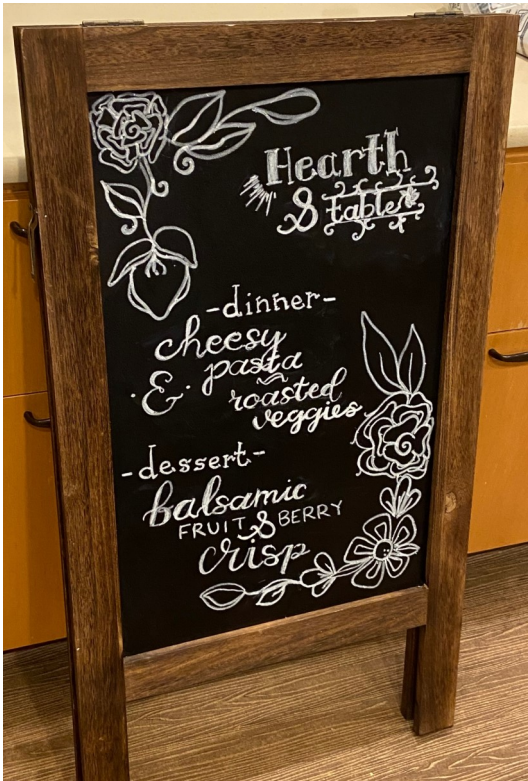 Hearth
& table
-dinner-
cheesy
pasta
& roasted
veggies
-dessert-
balsamic
FRUIT & BERRY
crisp